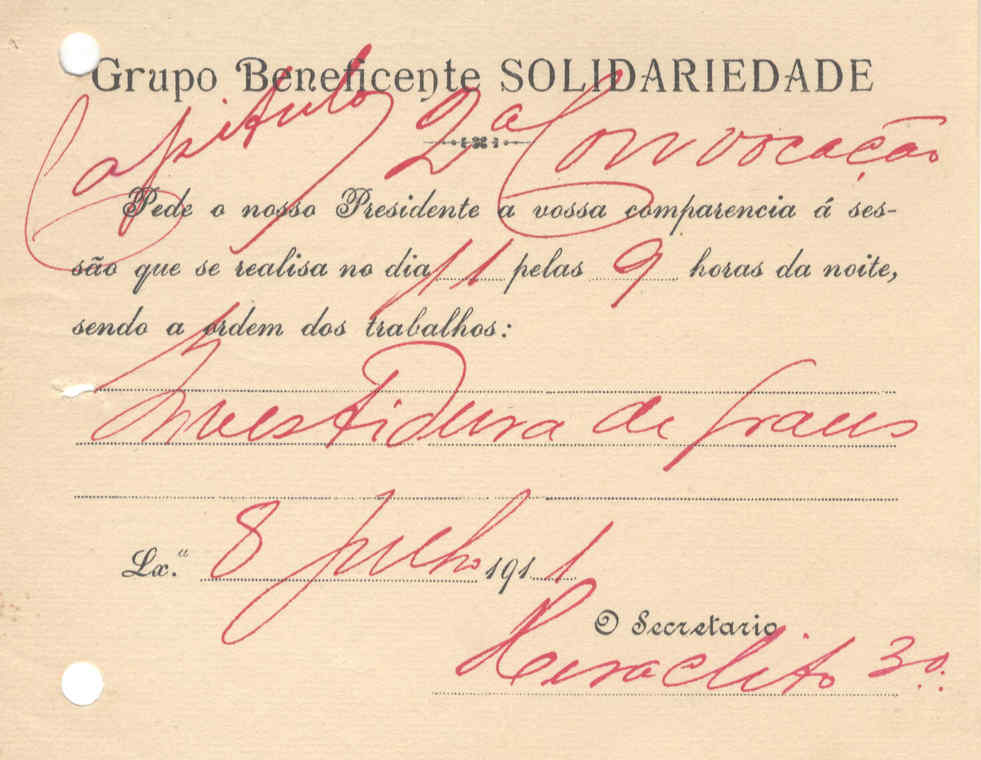 Grupo Beneficente SOLIDARIEDADE
Capitulo 2ª Convocação
Pede o nosso Presidente a vossa comparencia á ses-
são que se realisa no dia 11 pelas 9 horas da noite,
sendo a ordem dos trabalhos:
Investidura de graus
Lx.ª 8 Julho 1911
O Secretario
Heraclito 3º.·.